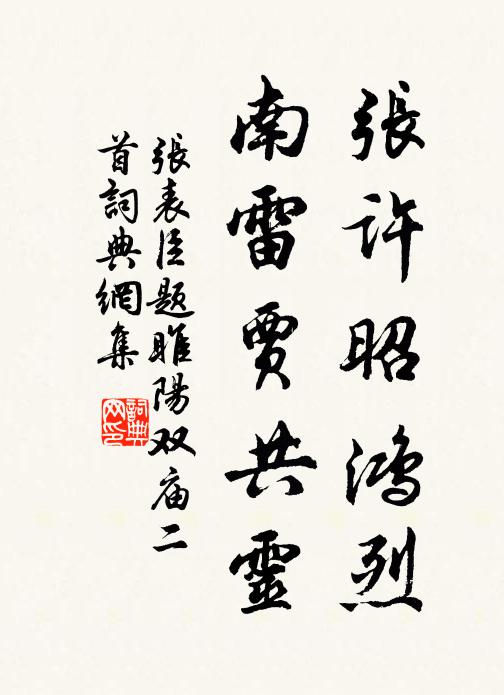 張許昭鴻烈
南雷賈共靈
張表臣題睢陽双庙二
首詞典網集
詞典
网印